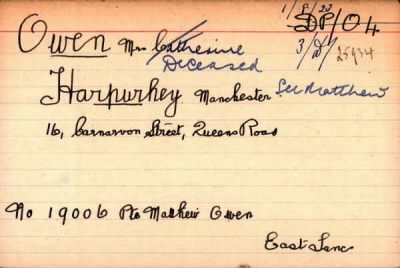 1/8/23
DP/04
Owen Mrs Catherine 3/D/ 25934
Deceased
Harpurhey Manchester See Matthew
16, Carnarvon Street, Queens Road
No 19006 Pte Matthew Owen
East Lanc